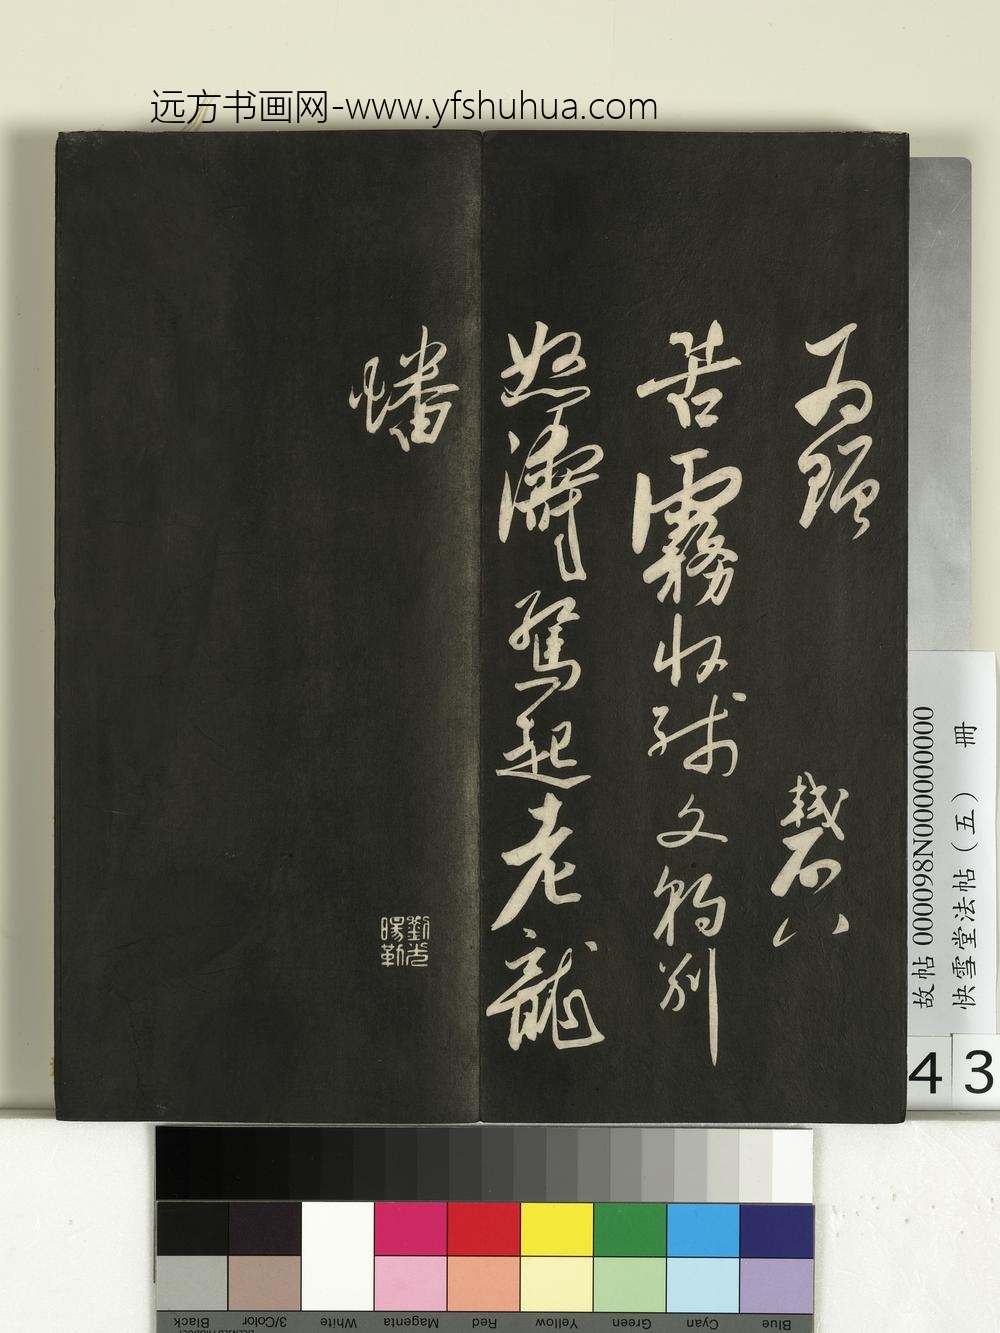 远方书画网-www.yfshuhua.com
为
八
苦霧收残文豹别
怒濤驚起老龍
蟠
劉光
暘勒
故帖 000098N000000000
快雪堂法帖（五） 冊
43
Black
3/Color
White
Magenta
Red
Yellow
Green
Cyan
Blue